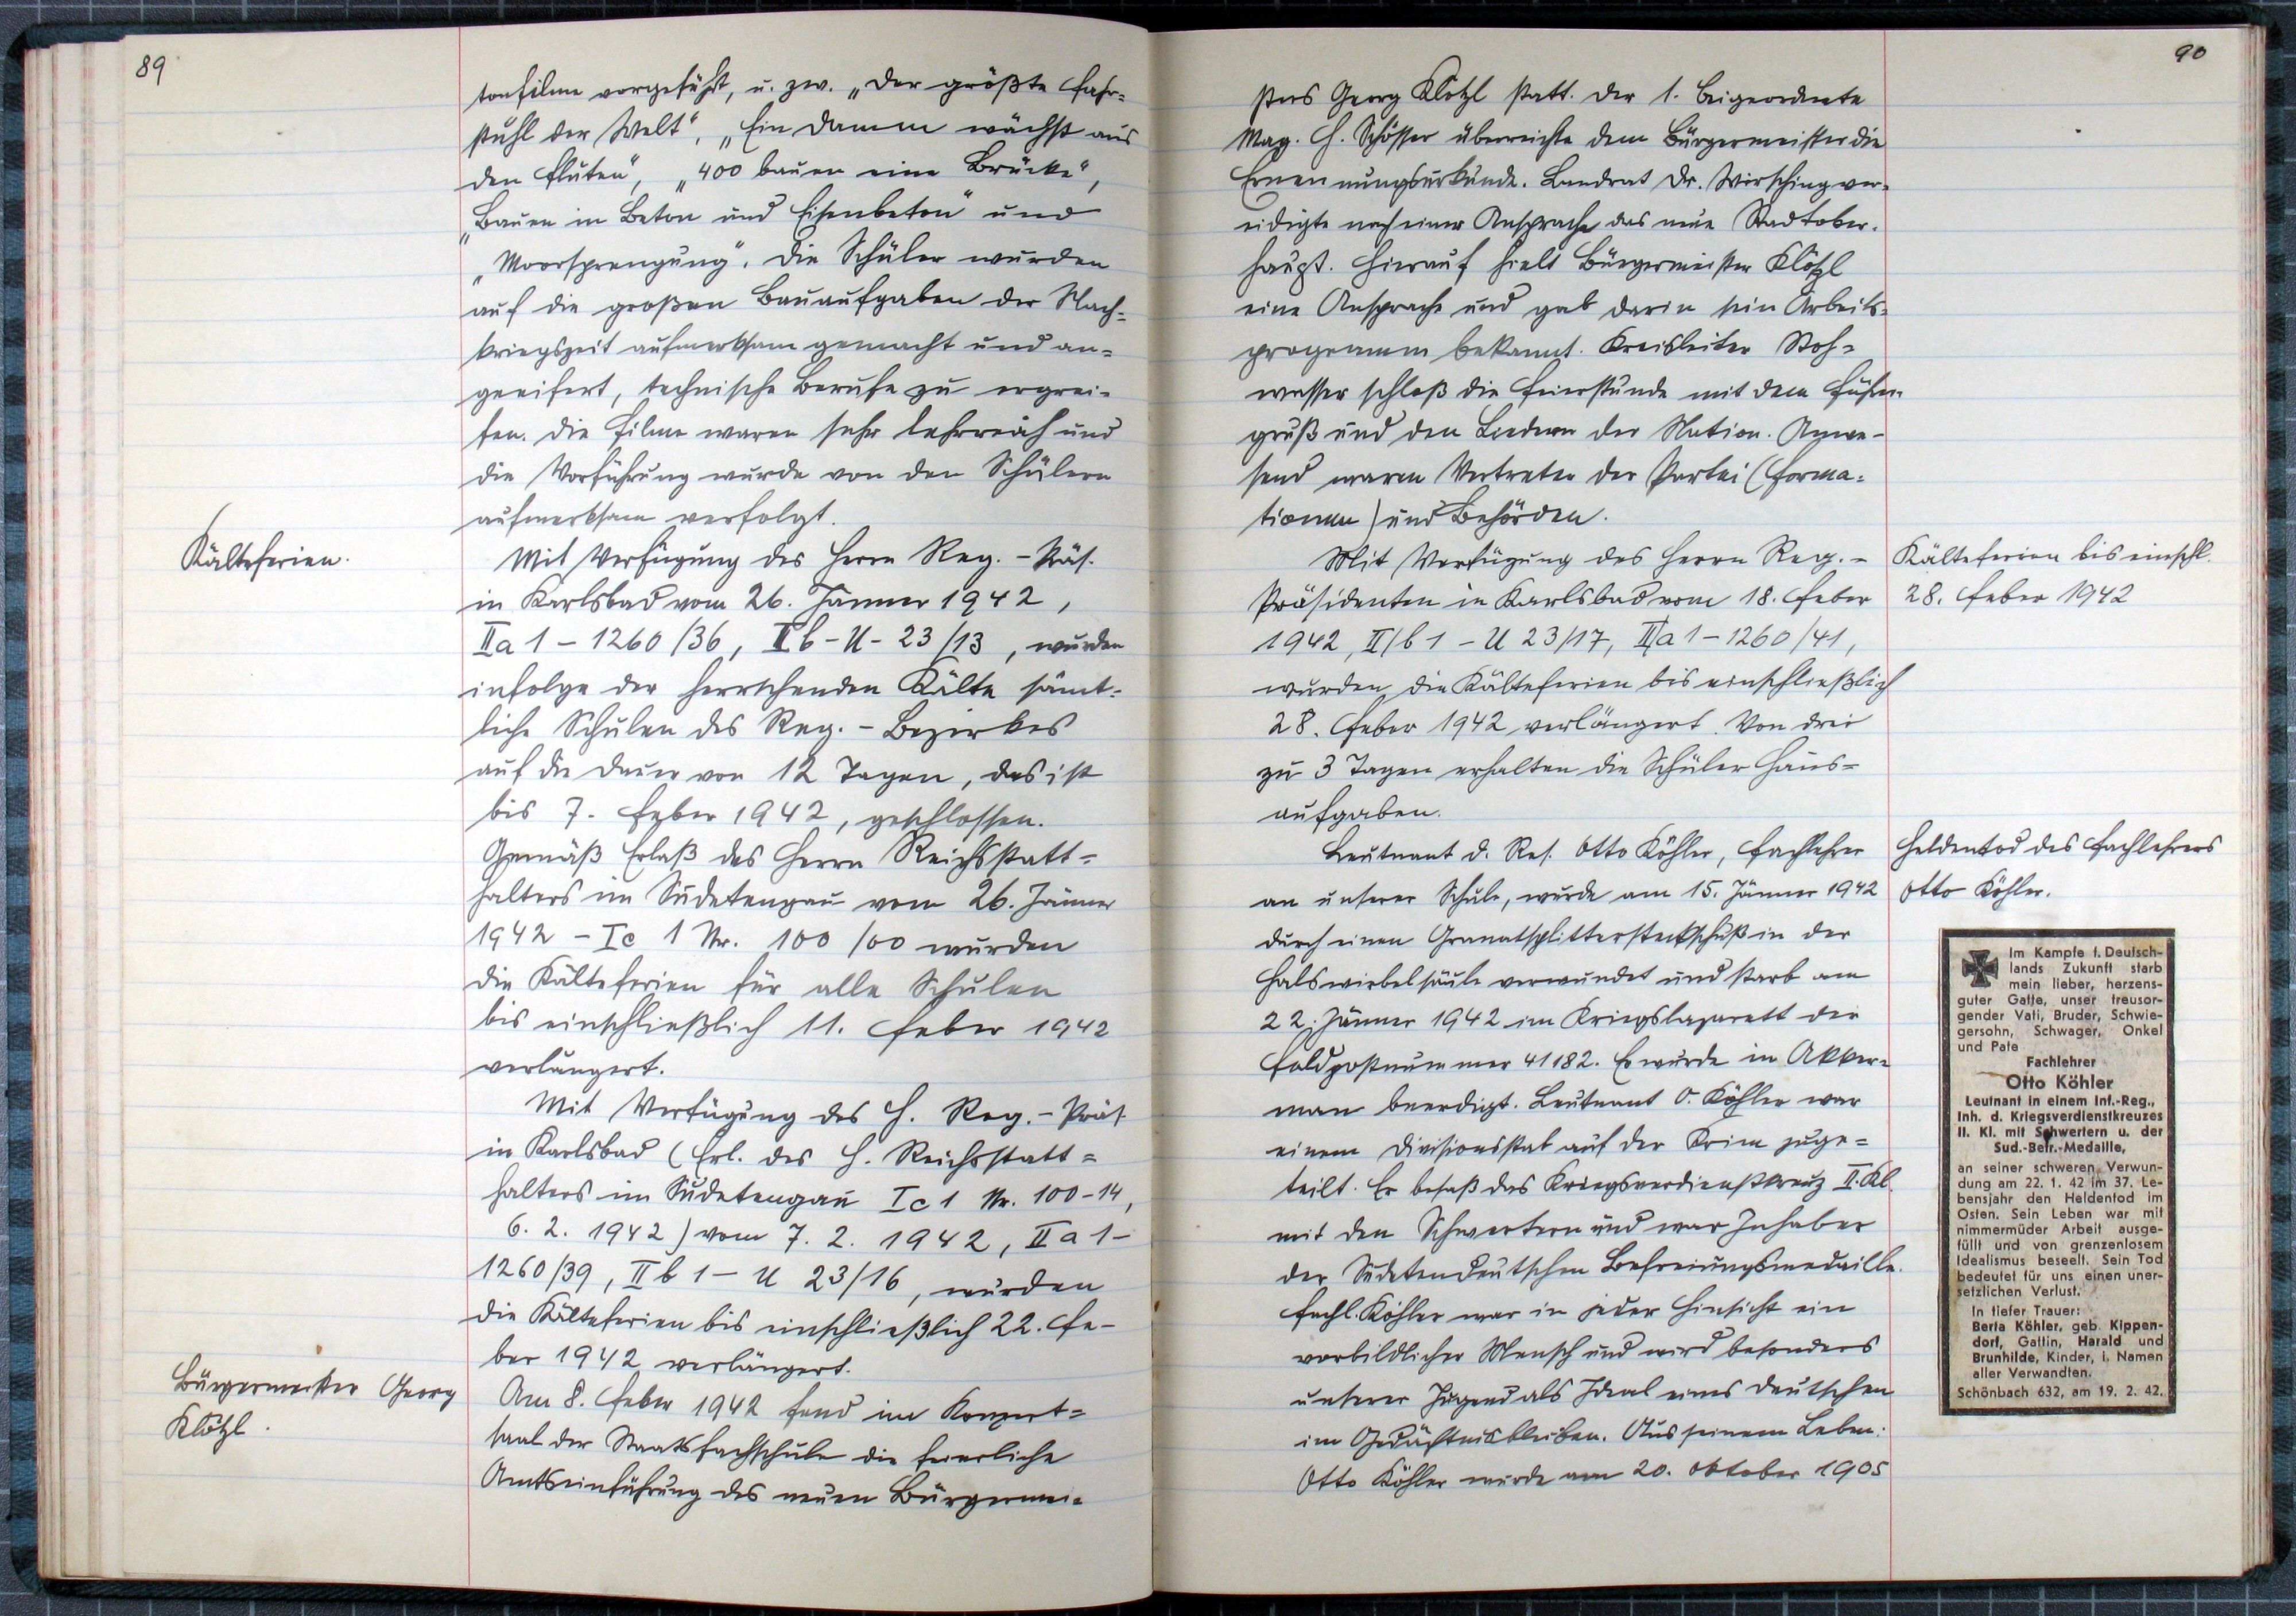 89
tonfilme vorgeführt, u. zw. „Der größte Fahr=
stuhl der Welt“, „Ein Damm wächst aus
den Fluten“, „400 bauen eine Brücke“,
„Bauen in Beton und Eisenbeton“ und
„Moorsprengung“. Die Schüler wurden
auf die großen Bauaufgaben der Nach=
kriegszeit aufmerksam gemacht und an=
geeifert, technische Berufe zu ergrei=
fen. Die Filme waren sehr lehrreich und
die Vorführung wurde von den Schülern
aufmerksam verfolgt.
Kälteferien.
Mit Verfügung des Herrn Reg.-Präs.
in Karlsbad vom 26. Jänner 1942,
IIa 1 – 1260/36, IIb – U – 23/13, wurden
infolge der herrschenden Kälte sämt=
liche Schulen des Reg.-Bezirkes
auf die Dauer von 12 Tagen, das ist
bis 7. Feber 1942, geschlossen.
Gemäß Erlaß des Herrn Reichsstatt=
halters im Sudetengau vom 26. Jänner
1942 – Ic 1 Nr. 100/00 wurden
die Kälteferien für alle Schulen
bis einschließlich 11. Feber 1942
verlängert.
Mit Verfügung des H. Reg.-Präs.
in Karlsbad (Erl. des H. Reichsstatt=
halters im Sudetengau Ic 1 Nr. 100-14,
6. 2. 1942) vom 7. 2. 1942, IIa 1 –
1260/39, IIb 1 – U 23/16, wurden
die Kälteferien bis einschließlich 22. Fe-
ber 1942 verlängert.
Bürgermeister Georg
Klötzl.
Am 8. Feber 1942 fand im Konzert=
saal der Staatsfachschule die feierliche
Amtseinführung des neuen Bürgermei=
90
sters Georg Klötzl statt. Der 1. Beigeordnete
Mag. H. Schösser überreichte dem Bürgermeister die
Ernennungsurkunde. Landrat Dr. Wirsching ver=
eidigte nach einer Ansprache das neue Stadtober=
haupt. Hierauf hielt Bürgermeister Klötzl
eine Ansprache und gab darin sein Arbeits=
programm bekannt. Kreisleiter Stoh=
wasser schloß die Feierstunde mit dem Führer-
gruß und den Liedern der Nation. Anwe-
send waren Vertreter der Partei (Forma=
tionen) und Behörden.
Mit Verfügung des Herrn Reg.-
Präsidenten in Karlsbad vom 18. Feber
1942, II/b 1 – U 23/17, II/a 1 – 1260/41,
wurden die Kälteferien bis einschließlich
28. Feber 1942 verlängert. Von drei
zu 3 Tagen erhalten die Schüler Haus=
aufgaben.
Kälteferien bis einschl.
28. Feber 1942
Leutnant d. Res. Otto Köhler, Fachlehrer
an unserer Schule, wurde am 15. Jänner 1942
durch einen Granatsplittersteckschuß in der
Halswirbelsäule verwundet und starb am
22. Jänner 1942 im Kriegslazarett der
Feldpostnummer 41182. Er wurde in Akker=
man beerdigt. Leutnant O. Köhler war
einem Divisionsstab auf der Krim zuge=
teilt. Er besaß das Kriegsverdienstkreuz II. Kl.
mit den Schwertern und war Inhaber
der Sudetendeutschen Befreiungsmedaille.
Fachl. Köhler war in jeder Hinsicht ein
vorbildlicher Mensch und wird besonders
unserer Jugend als Ideal eines deutschen
im Gedächtnis bleiben. Aus seinem Leben:
Otto Köhler wurde am 20. Oktober 1905
Heldentod des Fachlehrers
Otto Köhler.
Im Kampfe f. Deutsch-
lands Zukunft starb
mein lieber, herzens-
guter Gatte, unser treusor-
gender Vati, Bruder, Schwie-
gersohn, Schwager, Onkel
und Pate
Fachlehrer
Otto Köhler
Leutnant in einem Inf.-Reg.,
Inh. d. Kriegsverdienstkreuzes
II. Kl. mit Schwertern u. der
Sud.-Befr.-Medaille,
an seiner schweren Verwun-
dung am 22. 1. 42 im 37. Le-
bensjahr den Heldentod im
Osten. Sein Leben war mit
nimmermüder Arbeit ausge-
füllt und von grenzenlosem
Idealismus beseelt. Sein Tod
bedeutet für uns einen uner-
setzlichen Verlust.
In tiefer Trauer:
Berta Köhler, geb. Kippen-
dorf, Gattin, Harald und
Brunhilde, Kinder, i. Namen
aller Verwandten.
Schönbach 632, am 19. 2. 42.